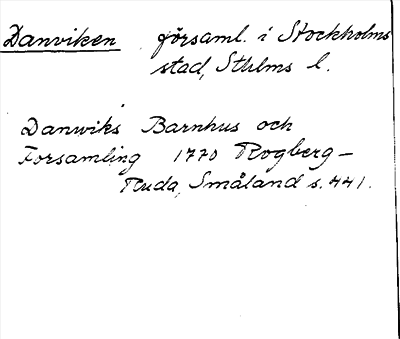 Danviken församl. i Stockholms
stad, Sthlms l.
Danwiks Barnhus och
Forsamling 1770 Rogberg-
Ruda, Småland s. 441.